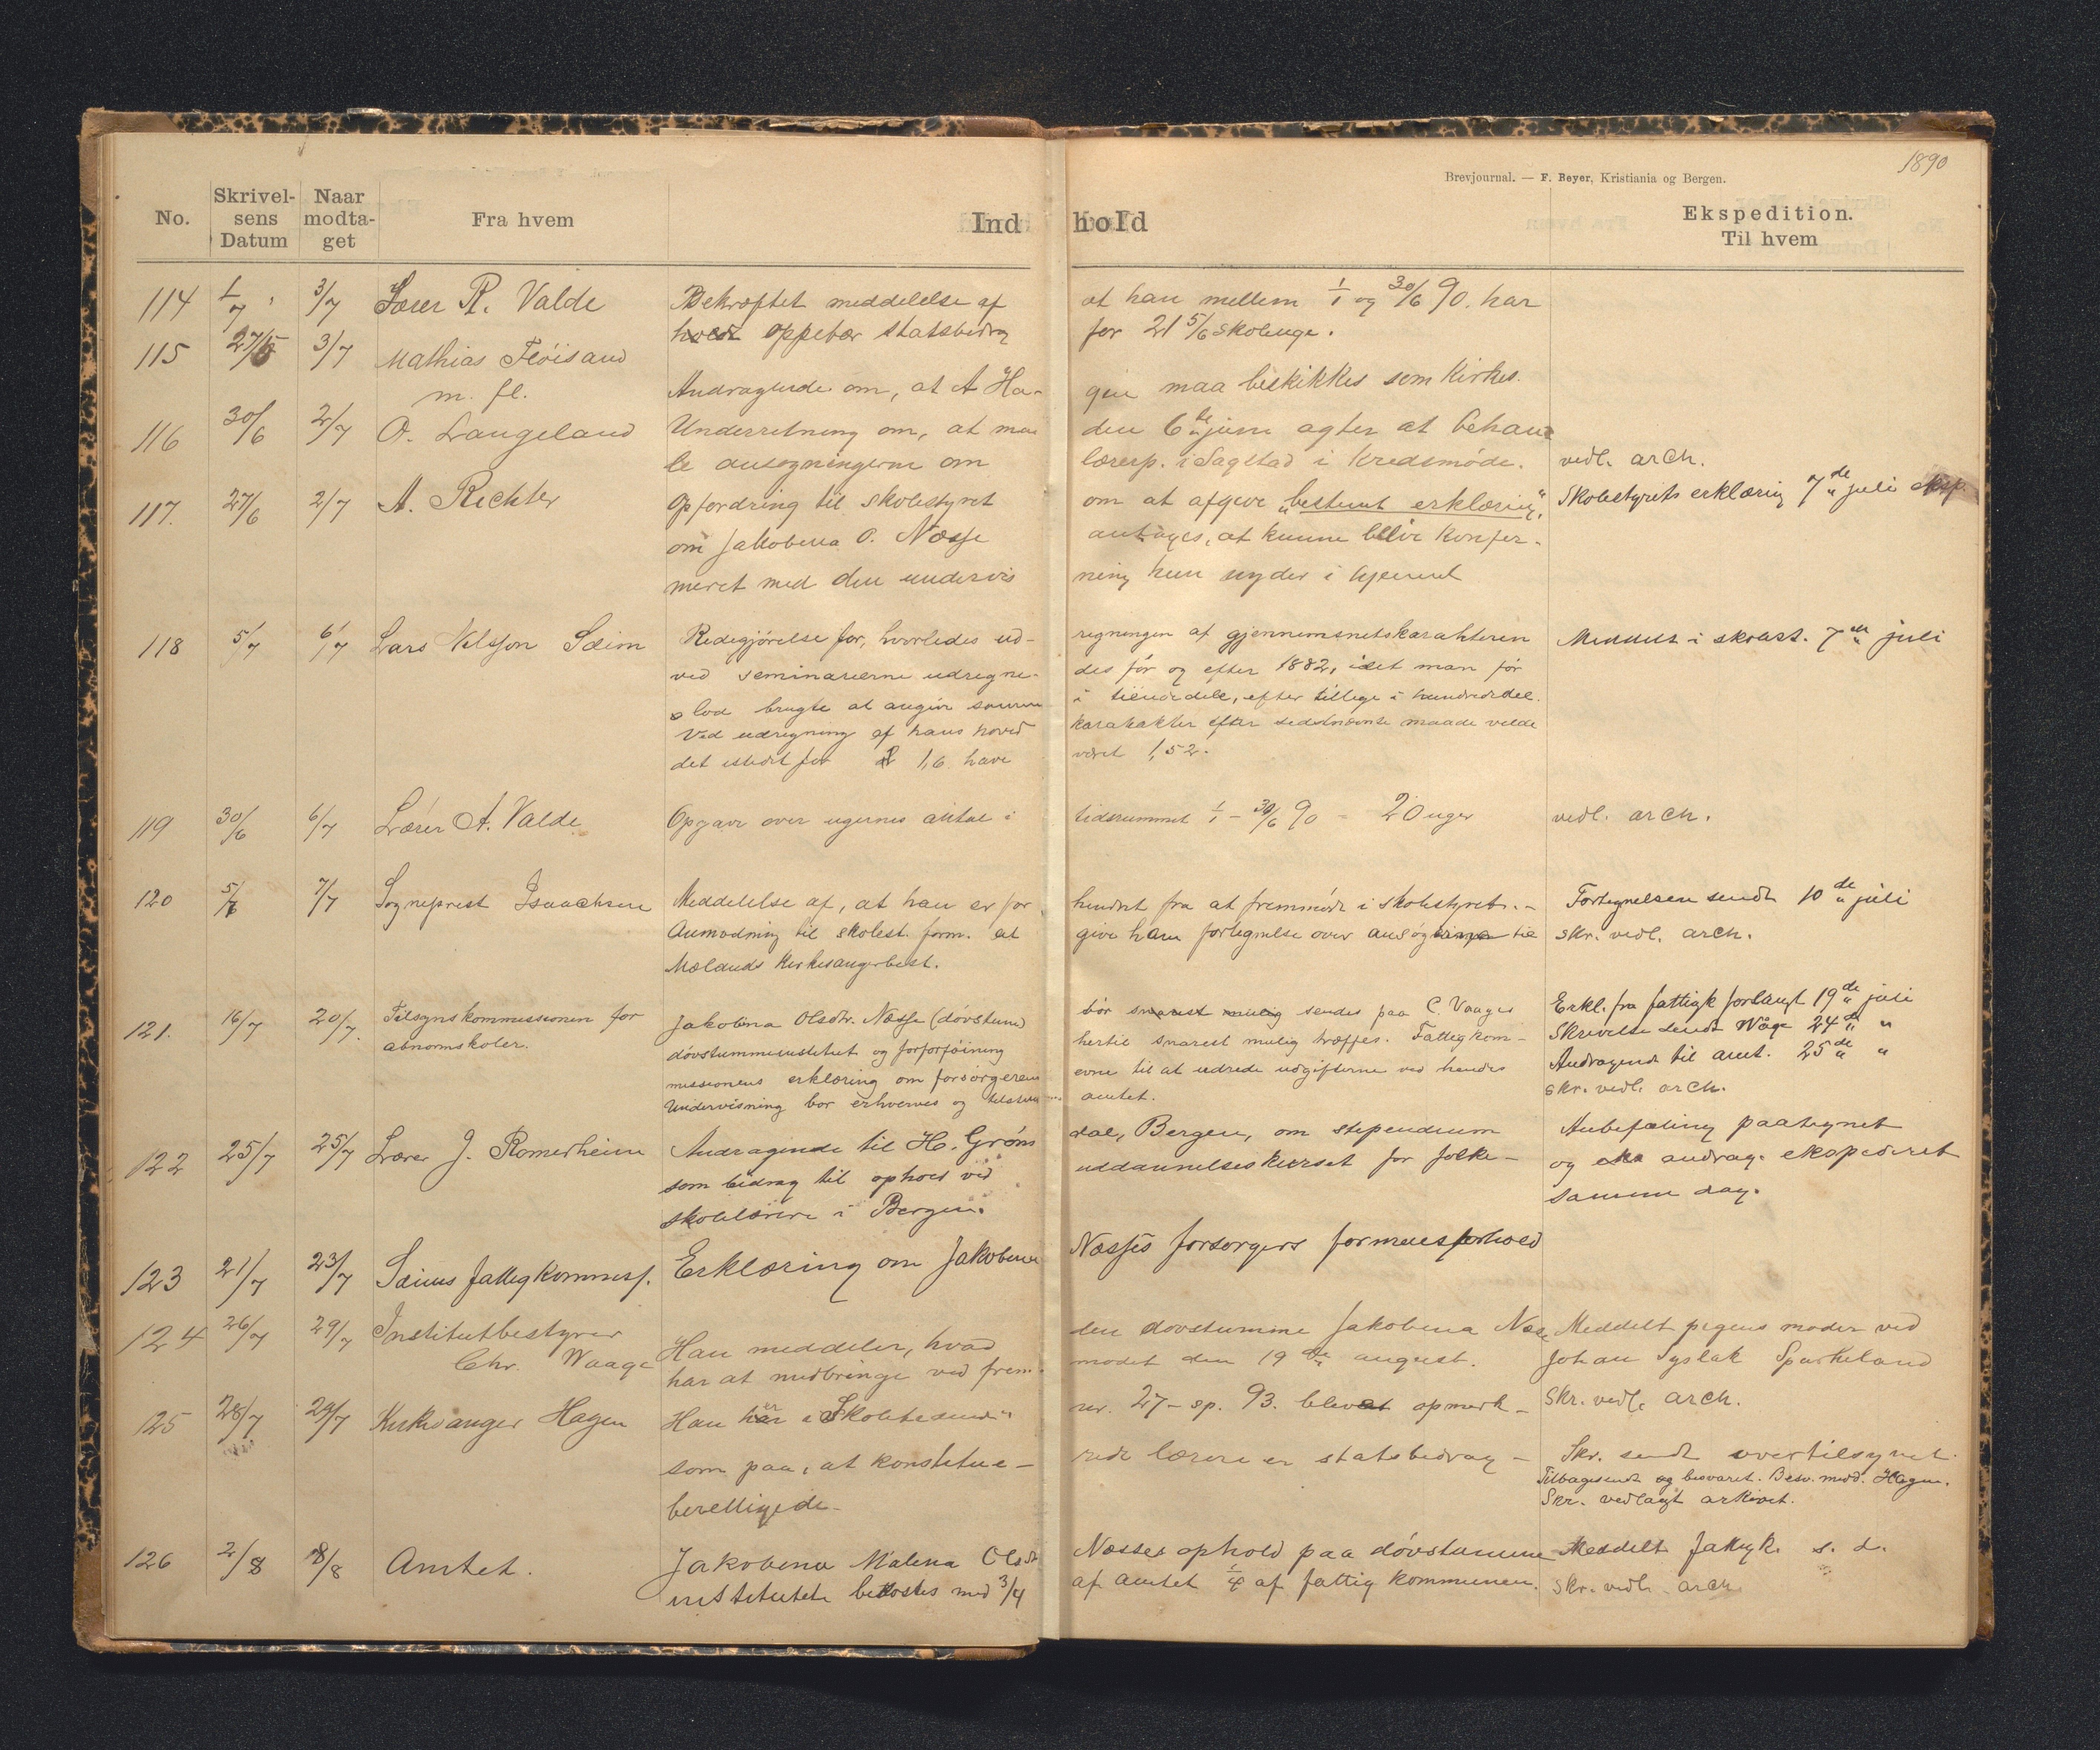 1890
Brevjournal. — F. Beyer, Kristiania og Bergen.
No. Skrivelsens Datum Naar modtaget Fra hvem Indhold Ekspedition. Til hvem
114 1/7 3/7 Lærer R. Valde Bekræftet meddelelse af at han mellem 1/1 og 30/6 90. har
hvad oppebær statsbidrag for 21 5/6 skoleuge.
115 27/6 3/7 Mathias Fløisand
m. fl. Andragende om, at A Ha- gen maa beskikkes som Kirkes.
116 30/6 2/7 O. Langeland Underretning om, at man den 6te juni agter at behand
le ansøgningerne om lærerp. i Sagstad i Kredsmøde. vedl. arch.
117. 27/6 2/7 A. Richter Opfordring til skolestyret om at afgive „bestemt erklæring“, Skolestyrets erklæring 7de juli eksp.
om Jakobina O. Næsse antages, at kunne blive Konfer-
meret med den undervis ning hun nyder i hjemmet
118 5/7 6/7 Lars Nilsson Sæim Redegjørelse for, hvorledes ud- regningen af gjennemsnitskarakteren Meddelt i skolest. 7de juli
ved seminarierne udregne- des før og efter 1882, idet man før
lod brugte at angive samme i tiendedele, efter tillige i hundrededel.
Ved udregning af hans hoved karakakter efter sidstnævnte maade vilde
det istedet for 1,6 have været 1,52.
119 30/6 6/7 Lærer A. Valde Opgave over ugernes antal i tidsrummet 1/1 - 30/6 90 = 20 uger vedl. arch.
120 5/7 7/7 Sogneprest Isaachsen Meddelelse af, at han er for hindret fra at fremmøde i skolestyret. - Fortegnelsen sendt 10de juli
Anmodning til skolest. form. at give ham fortegnelse over ansøgerne til skr. vedl. arch.
Mælands Kirkesangerbest.
121. 16/7 20/7. Tilsynskommissionen for Jakobina Olsdtr. Næsse (døvstum) bør snarest mulig sendes paa C. Vaages Erkl. fra fattigk forlangt 19de juli
abnormskoler. døvstummeinstitut og forforføining hertil snarest mulig træffes. Fattigkom- Skrivelse sendt Wåge 24de "
missionens erklæring om forsørgerens evne til at udrede udgifterne ved hendes Andragende til amt. 25de "
Undervisning bør erhverves og amtet. skr. vedl. arch.
122 25/7 25/7 Lærer J. Romerheim Andragende til H. Grøns dal, Bergen, om stipendium Anbefaling paategnet
som bidrag til ophold ved uddannelseskurset for folke- og andrag. ekspederet
skolelærere i Bergen. samme dag.
123 21/7 23/7 Sæims fattigkommiss. Erklæring om Jakobina Næsses forsørgers formuesforhold
124 26/7 29/7 Institutbestyrer Han meddeler, hvad den døvstumme Jakobina Næsse Meddelt pigens moder ved
Chr. Waage har at medbringe ved frem- mødet den 19de august. Johan Syslak Spurkeland
125 28/7 29/7 Kirkesanger Hagen Han er i „Skoletidende“ nr. 27 - sp. 93. blevet opmerk- Skr. vedl. arch.
som paa, at konstitue- rede lærere er statsbidrag - Skr. sendt overtilsynet.
berettigede. Tilbagesendt og besvaret. Besv. medd. Hagen.
Skr. vedlagt arkivet.
126 2/8 8/8 Amtet. Jakobina Malena Olsdt Næsses ophold paa døvstumme Meddelt fattigk. s. d.
institutet bekostes med 3/4 af amtet 1/4 af fattigkommunen. Skr. vedl. arch